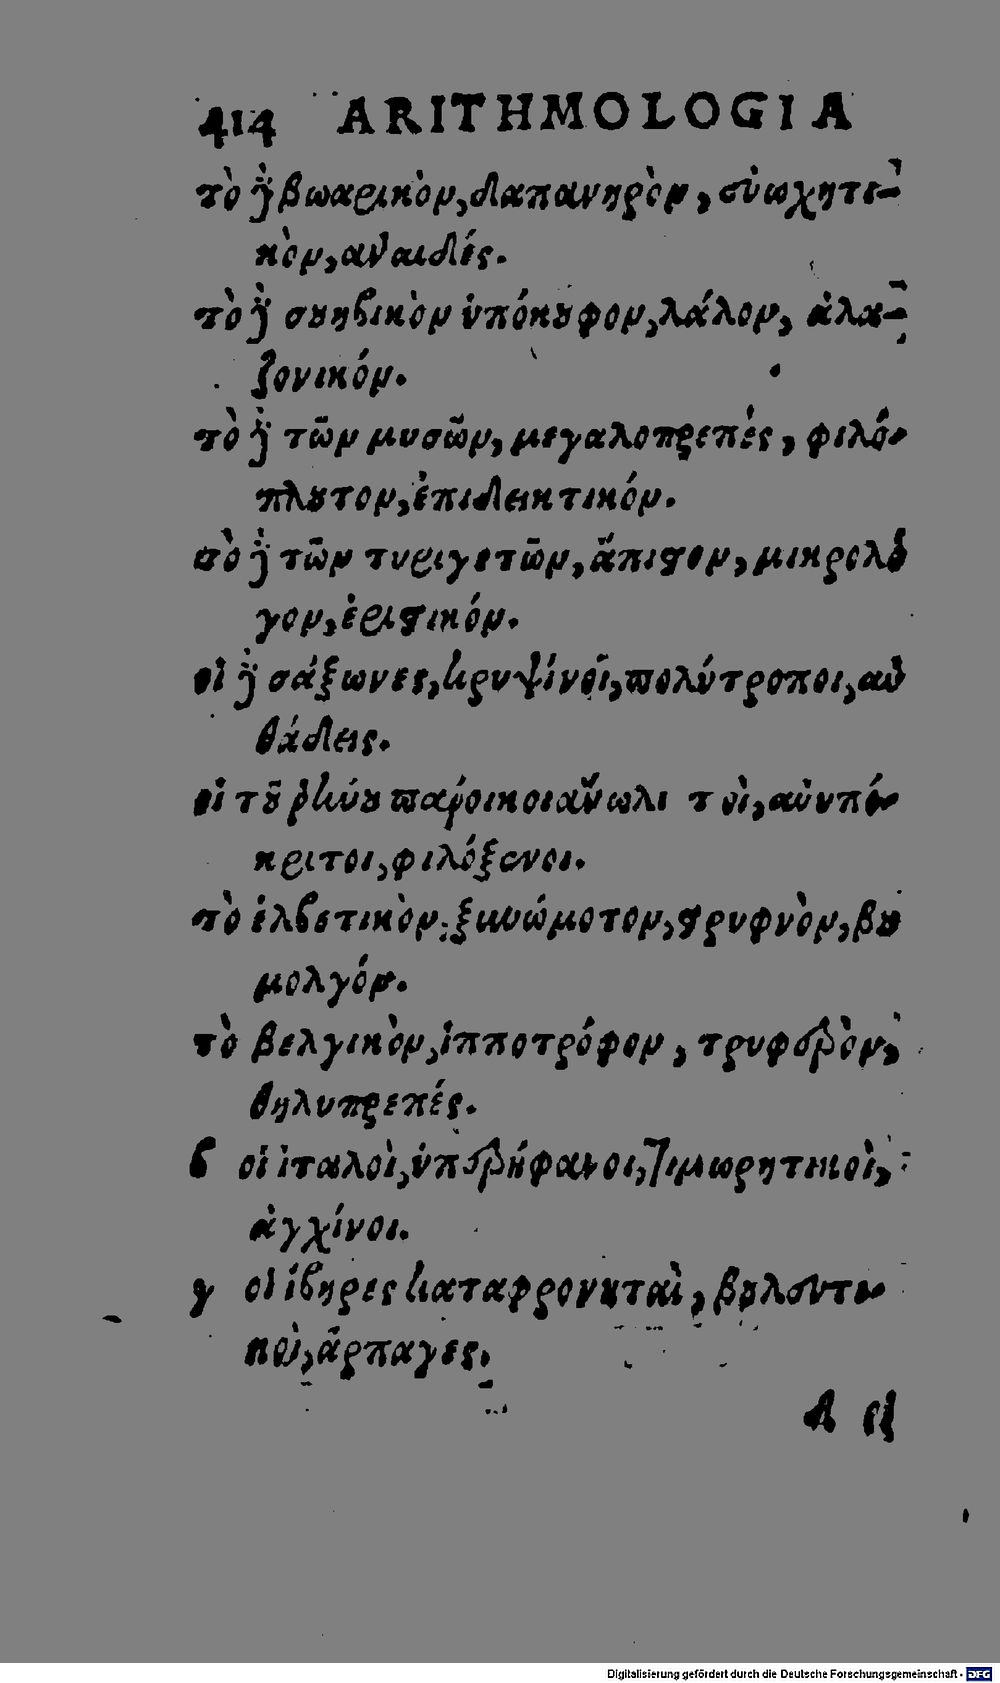 414 ARITHMOLOGIA
τὸ ἢ βωαρικὸν, δαπανηρὸν, συωχητι-
κὸν, αναιδές.
τὸ ἢ σουηβικὸν ὑπόκουφον, λάλον, ἀλα-
ζονικόν.
τὸ ἢ τῶν μυσῶν, μεγαλοπρεπὲς, φιλό-
πλουτον, ἐπιδεικτικόν.
τὸ ἢ τῶν τυριγετῶν, ἄπιστον, μικρολό
γον, ἐριστικόν.
οἱ ἢ σάξωνες, κρυψίνοι, πολύτροποι, αὐ
θάδεις.
οἱ τοῦ ῥκύου παροικοι, αὐυπό-
κριτοι, φιλόξενοι.
τὸ ἑλβετικὸν, ξυνώμοτον, στρυφνὸν, βου
μολγόν.
τὸ βελγικὸν, ἱπποτρόφον, τρυφερὸν,
θηλυπρεπές.
β οἱ ἰταλοὶ, ὑπερήφανοι, τιμωρητικοὶ,
ἀγχίνοι.
γ οἱ ἴβηρες καταφρονουταὶ, βουλευτι-
κοὶ, ἅρπαγες.
Digitalisierung gefördert durch die Deutsche Forschungsgemeinschaft - DFG